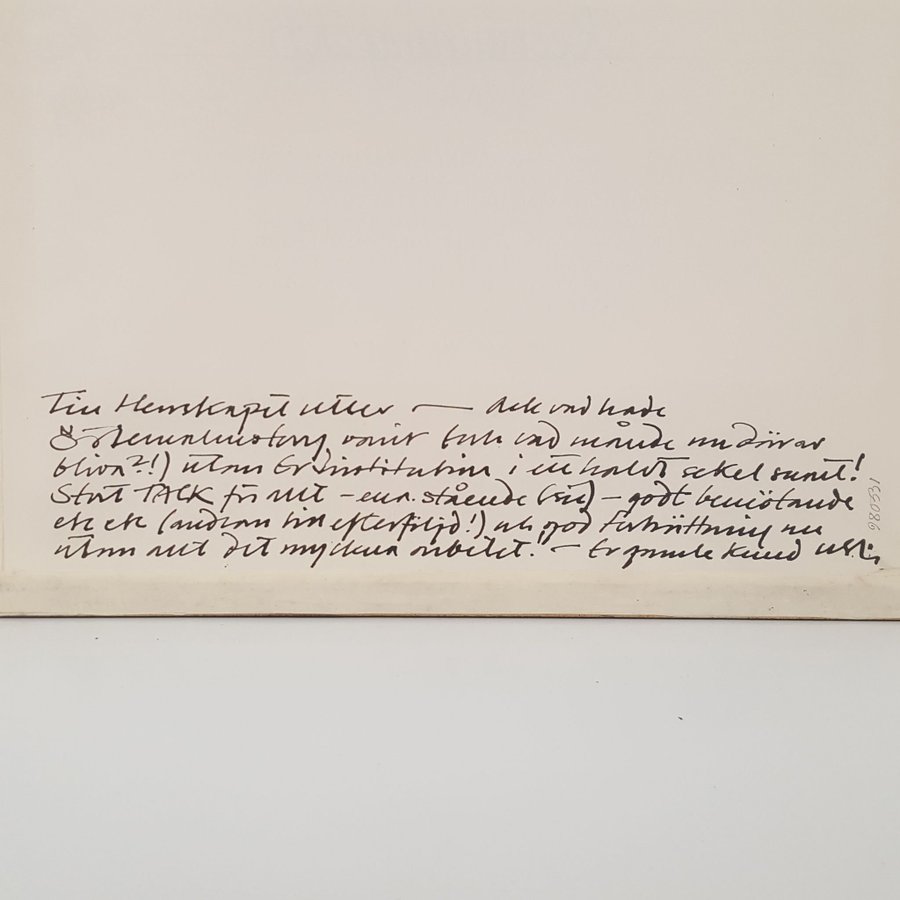 Till Herrskapet — Ack vad hade
varit (och vad månde nu därav
bliva?!) utan Er Institution i ett halvt sekel samt!
Stort TACK för allt – enastående (sic) – godt bemötande
etc etc (andran till efterföljd!) och god förtröttning nu
utan allt det myckna arbetet! — Er gamle kund
155086